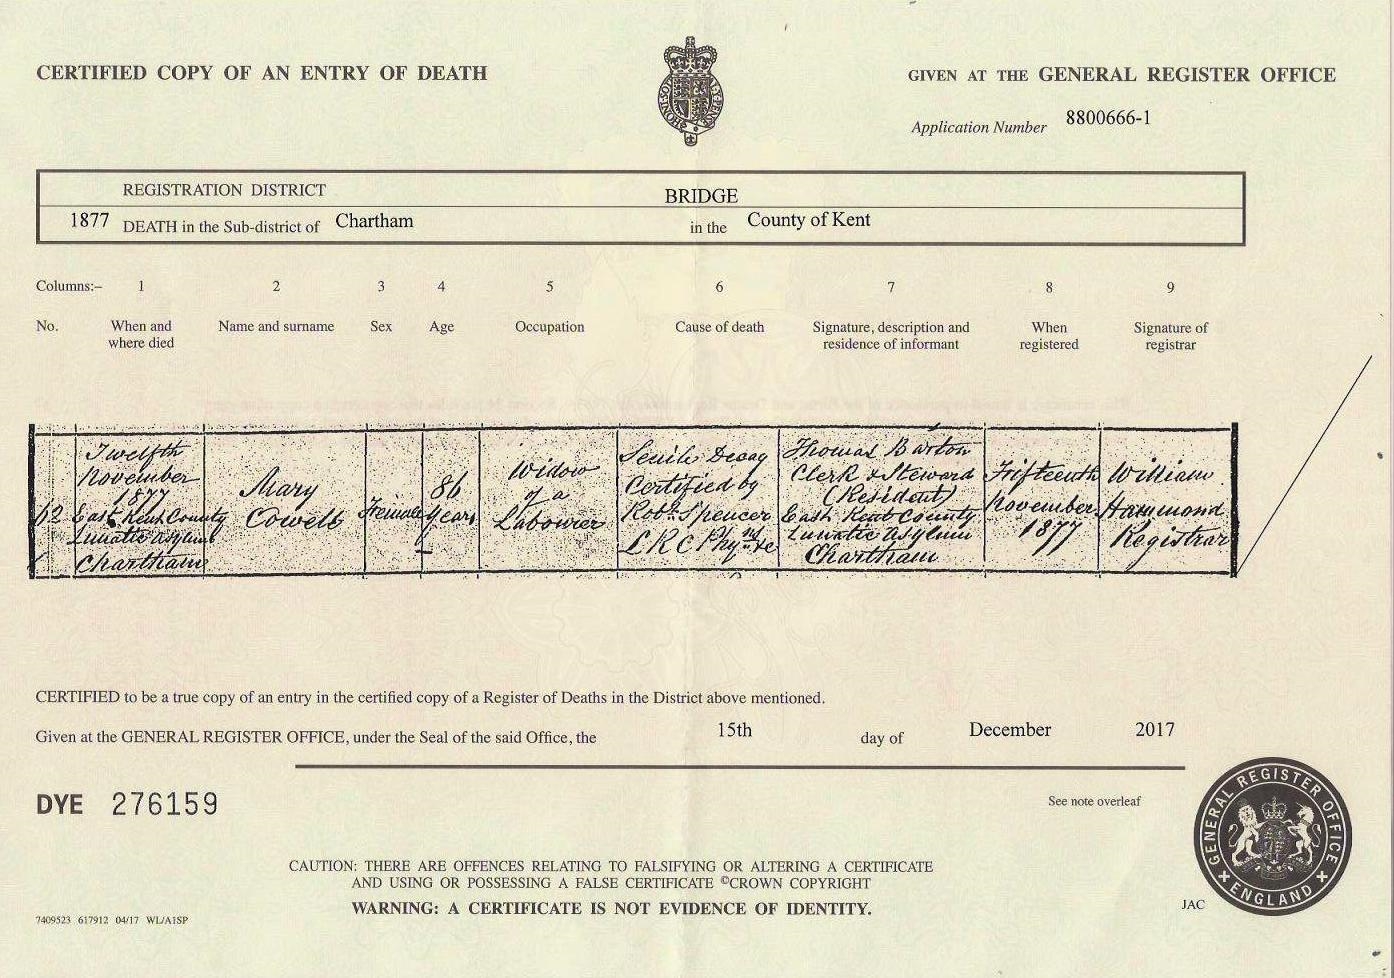 CERTIFIED COPY OF AN ENTRY OF DEATH
GIVEN AT THE GENERAL REGISTER OFFICE
Application Number 8800666-1
REGISTRATION DISTRICT BRIDGE
1877 DEATH in the Sub-district of Chartham in the County of Kent
Columns:– 1 2 3 4 5 6 7 8 9
No. When and where died Name and surname Sex Age Occupation Cause of death Signature, description and residence of informant When registered Signature of registrar
Twelfth
November
1877
East Kent County
Lunatic Asylum
Chartham
Mary
Cowell
Female
86
years
Widow
of a
Labourer
Senile Decay
Certified by
Robt. Spencer
L R C Phyn &c
Thomas Barton
Clerk & Steward
(Resident)
East Kent County
Lunatic Asylum
Chartham
Fifteenth
November
1877
William
Hammond
Registrar
CERTIFIED to be a true copy of an entry in the certified copy of a Register of Deaths in the District above mentioned.
Given at the GENERAL REGISTER OFFICE, under the Seal of the said Office, the 15th day of December 2017
DYE 276159
See note overleaf
GENERAL REGISTER OFFICE
ENGLAND
CAUTION: THERE ARE OFFENCES RELATING TO FALSIFYING OR ALTERING A CERTIFICATE
AND USING OR POSSESSING A FALSE CERTIFICATE ©CROWN COPYRIGHT
WARNING: A CERTIFICATE IS NOT EVIDENCE OF IDENTITY.
JAC
7409523 617912 04/17 WL/A1SP